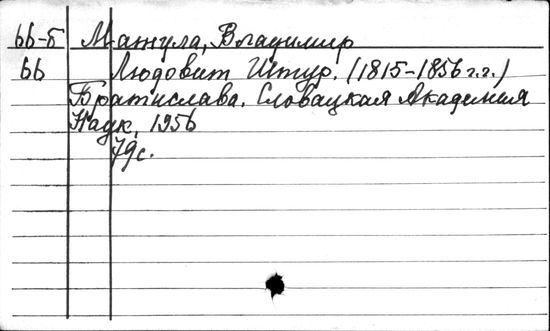 66-5 Матула, Владимир
66 Людовит Штур. (1815-1856 г.г.)
Братислава. Словацкая Академия
Наук, 1956
79с.